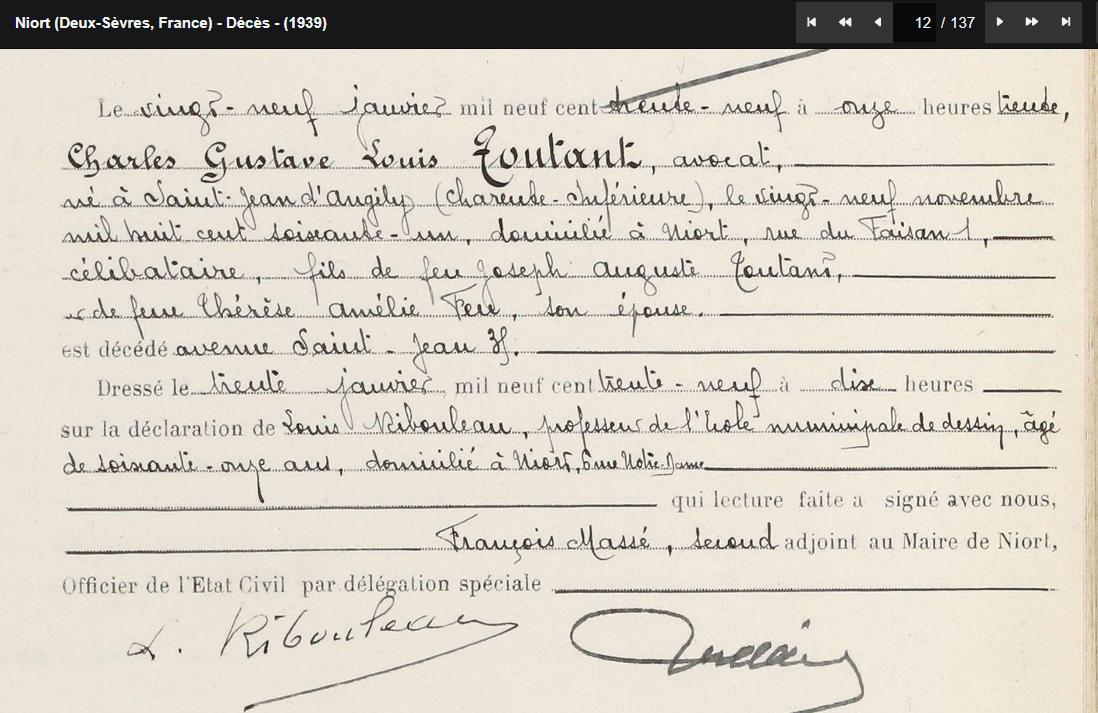 Niort (Deux-Sèvres, France) - Décès - (1939)
12 / 137
Le vingt-neuf janvier mil neuf cent trente-neuf à onze heures trente,
Charles Gustave Louis Toutant, avocat,
né à Saint-Jean d'Angély (Charente-Inférieure), le vingt-neuf novembre
mil huit cent soixante-un, domicilié à Niort, rue du Faisan 1,
célibataire, fils de feu Joseph Auguste Toutant,
et de feue Thérèse Amélie Feu, son épouse.
est décédé avenue Saint-Jean
Dressé le trente janvier mil neuf cent trente-neuf à dix heures
sur la déclaration de Louis Ribouleau, professeur de l'Ecole municipale de dessin, âgé
de soixante-onze ans, domicilié à Niort, 6 rue Notre-Dame
qui lecture faite a signé avec nous,
François Massé, second adjoint au Maire de Niort,
Officier de l'Etat Civil par délégation spéciale
L. Ribouleau